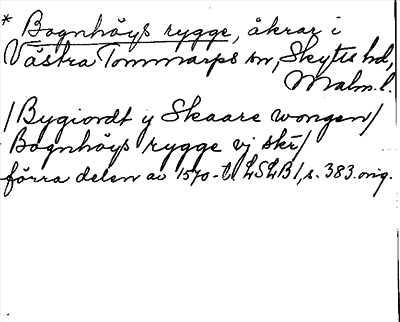 * Bognhöys rygge, åkrar i
Västra Tommarps sn, Skytts hd,
Malm. l.
/Bygiordt y Skaare wongen/
Bognhöys rygge vj skr/
förra delen av 1570-t. LSLB 1, s. 383. orig.